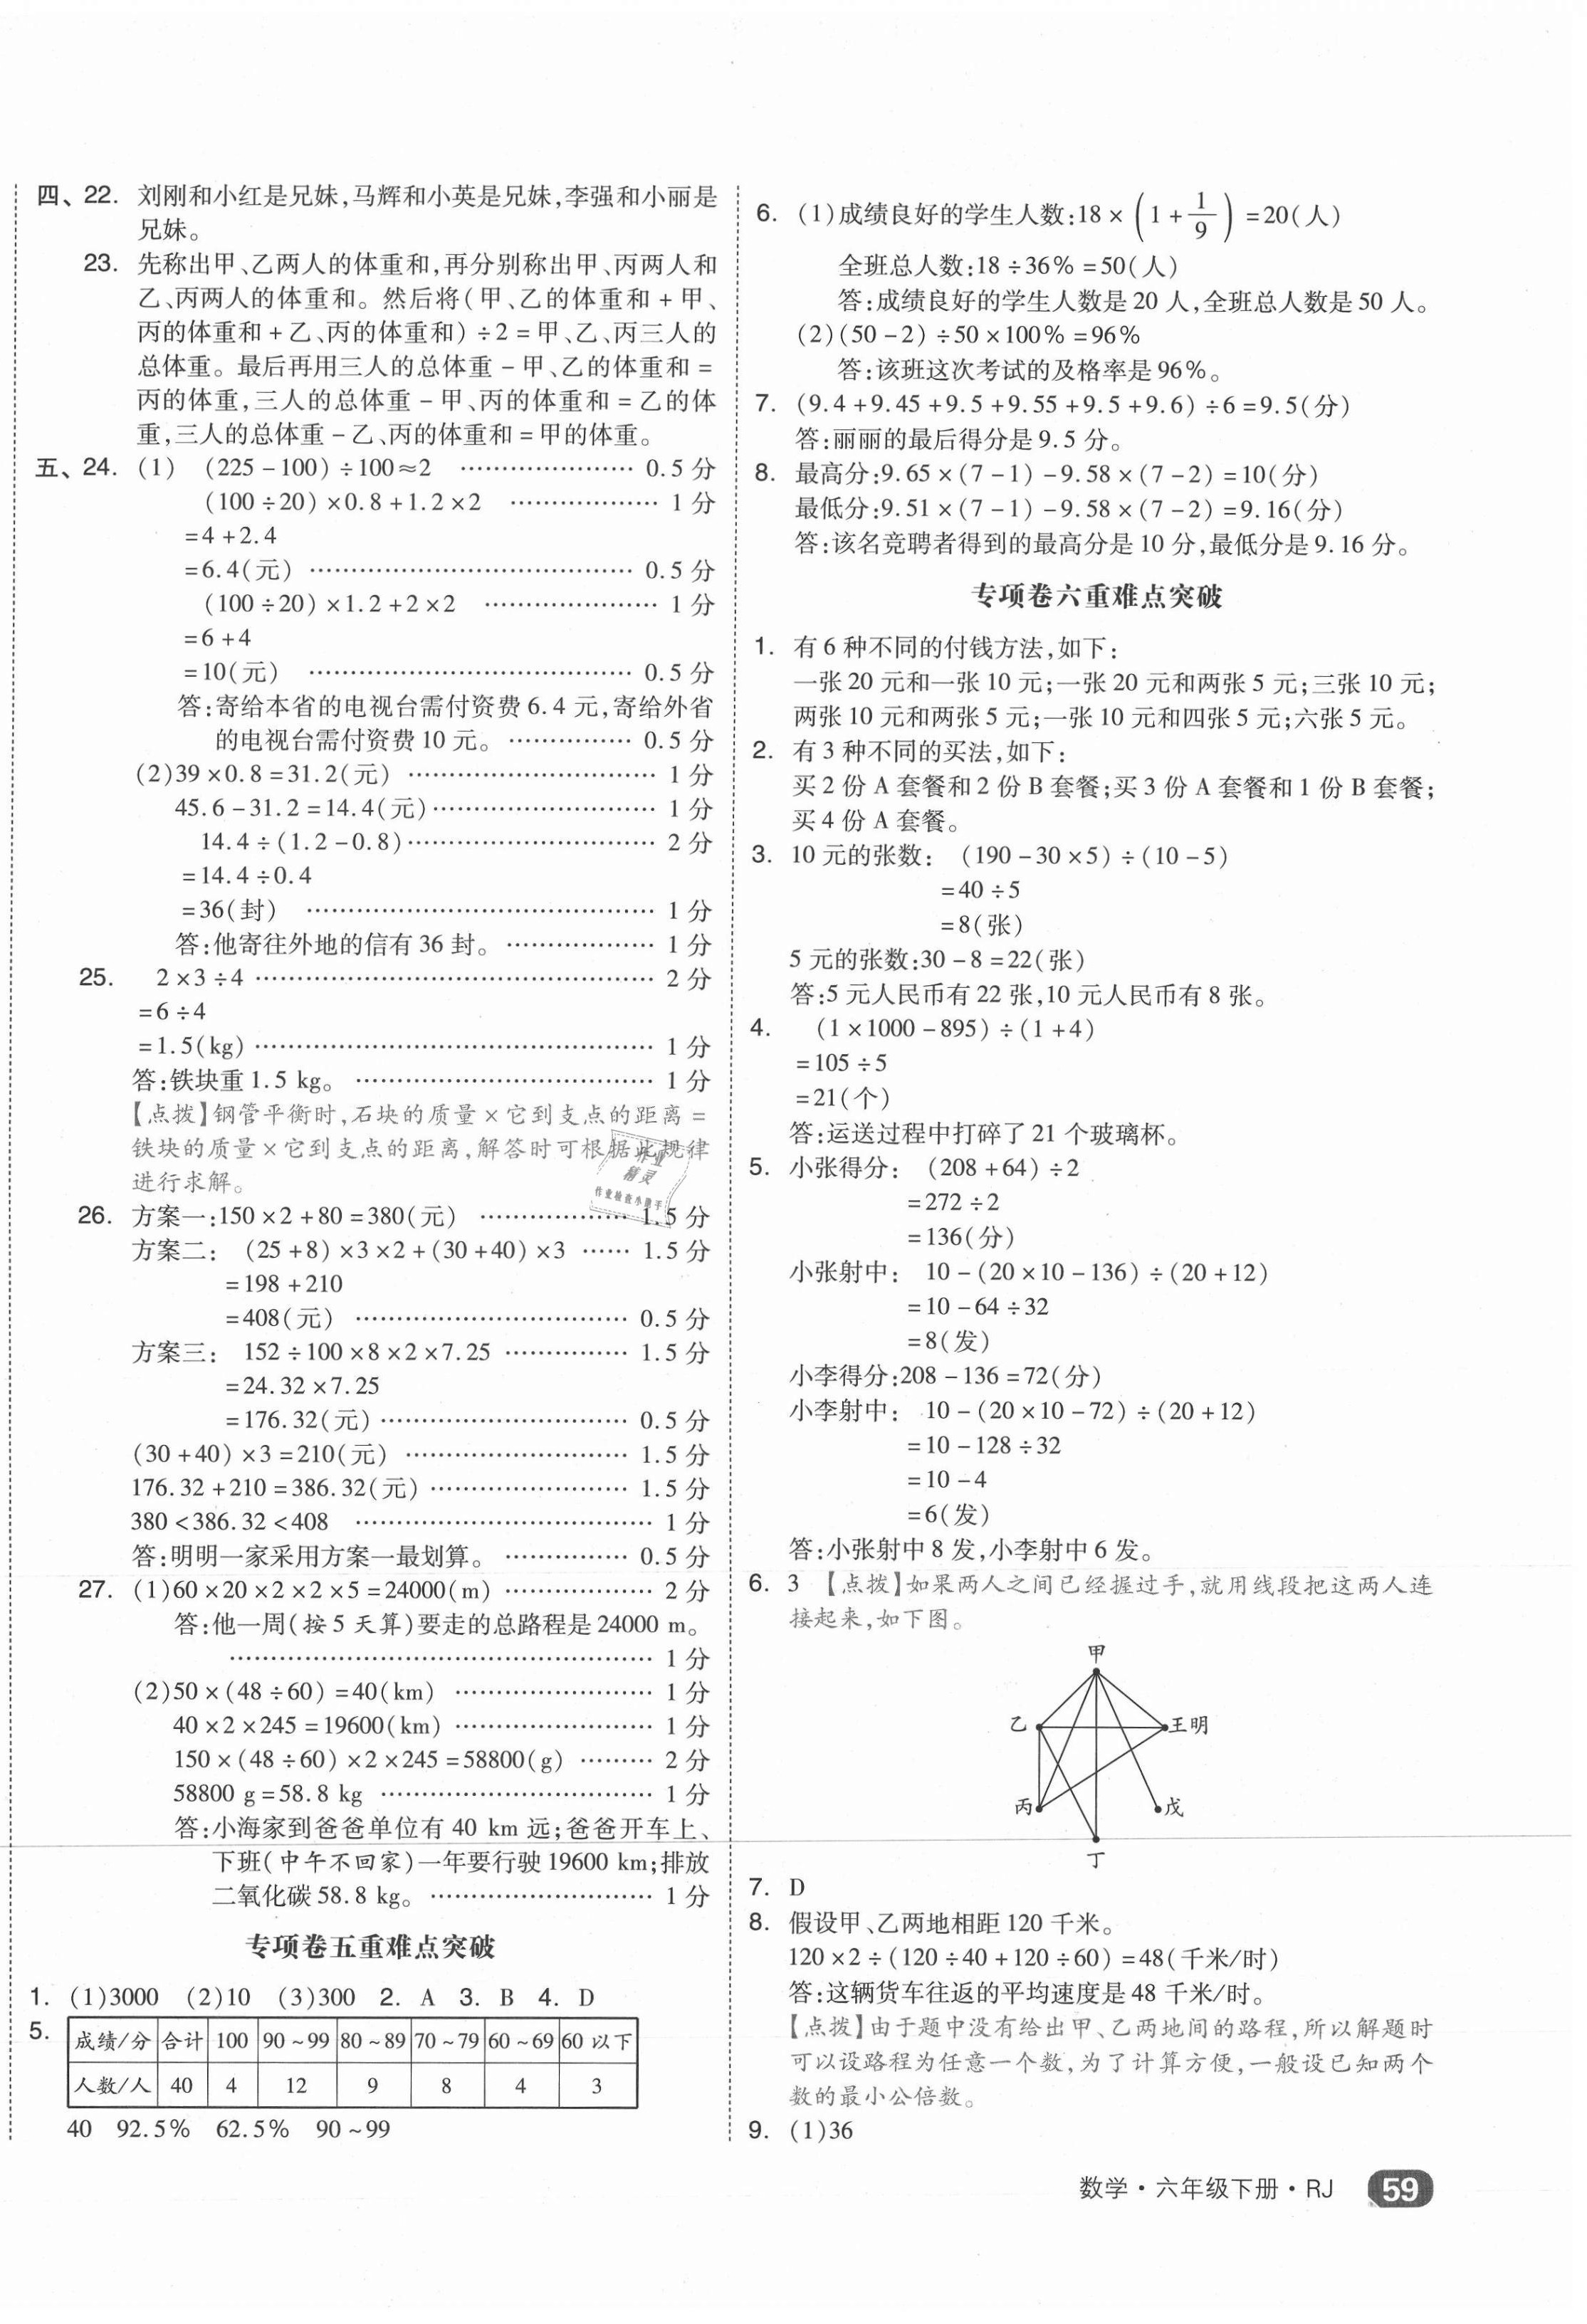 四、22. 刘刚和小红是兄妹,马辉和小英是兄妹,李强和小丽是
兄妹。
23. 先称出甲、乙两人的体重和,再分别称出甲、丙两人和
乙、丙两人的体重和。然后将(甲、乙的体重和+甲、
丙的体重和+乙、丙的体重和)÷2=甲、乙、丙三人的
总体重。最后再用三人的总体重-甲、乙的体重和=
丙的体重,三人的总体重-甲、丙的体重和=乙的体
重,三人的总体重-乙、丙的体重和=甲的体重。
五、24. (1) (225-100)÷100≈2 …………………… 0.5分
(100÷20)×0.8+1.2×2 ……………… 1分
=4+2.4
=6.4(元) ………………………………… 0.5分
(100÷20)×1.2+2×2 ………………… 1分
=6+4
=10(元) ………………………………… 0.5分
答:寄给本省的电视台需付资费6.4元,寄给外省
的电视台需付资费10元。 …………… 0.5分
(2)39×0.8=31.2(元) ………………………… 1分
45.6-31.2=14.4(元)……………………… 1分
14.4÷(1.2-0.8)………………………… 2分
=14.4÷0.4
=36(封) …………………………………… 1分
答:他寄往外地的信有36封。 ……………… 1分
25. 2×3÷4 ………………………………………… 2分
=6÷4
=1.5(kg) ………………………………………… 1分
答:铁块重1.5 kg。 ……………………………… 1分
【点拨】钢管平衡时,石块的质量×它到支点的距离=
铁块的质量×它到支点的距离,解答时可根据此规律
进行求解。
26. 方案一:150×2+80=380(元) ……………… 1.5分
方案二: (25+8)×3×2+(30+40)×3 …… 1.5分
=198+210
=408(元) …………………………… 0.5分
方案三: 152÷100×8×2×7.25 …………… 1.5分
=24.32×7.25
=176.32(元) ………………………… 0.5分
(30+40)×3=210(元) ……………………… 1.5分
176.32+210=386.32(元) …………………… 1.5分
380<386.32<408 ……………………………… 1分
答:明明一家采用方案一最划算。 …………… 0.5分
27. (1)60×20×2×2×5=24000(m) ……………… 2分
答:他一周(按5天算)要走的总路程是24000 m。
…………………………………………… 1分
(2)50×(48÷60)=40(km) …………………… 1分
40×2×245=19600(km) …………………… 1分
150×(48÷60)×2×245=58800(g) ……… 2分
58800 g=58.8 kg …………………………… 1分
答:小海家到爸爸单位有40 km远;爸爸开车上、
下班(中午不回家)一年要行驶19600 km;排放
二氧化碳58.8 kg。 ……………………… 1分
专项卷五重难点突破
1. (1)3000 (2)10 (3)300 2. A 3. B 4. D
5. 成绩/分 合计 100 90~99 80~89 70~79 60~69 60以下
人数/人 40 4 12 9 8 4 3
40 92.5% 62.5% 90~99
6. (1)成绩良好的学生人数:18×(1+1/9)=20(人)
全班总人数:18÷36%=50(人)
答:成绩良好的学生人数是20人,全班总人数是50人。
(2)(50-2)÷50×100%=96%
答:该班这次考试的及格率是96%。
7. (9.4+9.45+9.5+9.55+9.5+9.6)÷6=9.5(分)
答:丽丽的最后得分是9.5分。
8. 最高分:9.65×(7-1)-9.58×(7-2)=10(分)
最低分:9.51×(7-1)-9.58×(7-2)=9.16(分)
答:该名竞聘者得到的最高分是10分,最低分是9.16分。
专项卷六重难点突破
1. 有6种不同的付钱方法,如下:
一张20元和一张10元;一张20元和两张5元;三张10元;
两张10元和两张5元;一张10元和四张5元;六张5元。
2. 有3种不同的买法,如下:
买2份A套餐和2份B套餐;买3份A套餐和1份B套餐;
买4份A套餐。
3. 10元的张数: (190-30×5)÷(10-5)
=40÷5
=8(张)
5元的张数:30-8=22(张)
答:5元人民币有22张,10元人民币有8张。
4. (1×1000-895)÷(1+4)
=105÷5
=21(个)
答:运送过程中打碎了21个玻璃杯。
5. 小张得分: (208+64)÷2
=272÷2
=136(分)
小张射中: 10-(20×10-136)÷(20+12)
=10-64÷32
=8(发)
小李得分:208-136=72(分)
小李射中: 10-(20×10-72)÷(20+12)
=10-128÷32
=10-4
=6(发)
答:小张射中8发,小李射中6发。
6. 3 【点拨】如果两人之间已经握过手,就用线段把这两人连
接起来,如下图。
甲
乙 王明
丙 戊
丁
7. D
8. 假设甲、乙两地相距120千米。
120×2÷(120÷40+120÷60)=48(千米/时)
答:这辆货车往返的平均速度是48千米/时。
【点拨】由于题中没有给出甲、乙两地间的路程,所以解题时
可以设路程为任意一个数,为了计算方便,一般设已知两个
数的最小公倍数。
9. (1)36
数学·六年级下册·RJ 59
作业
精灵
作业检查小帮手